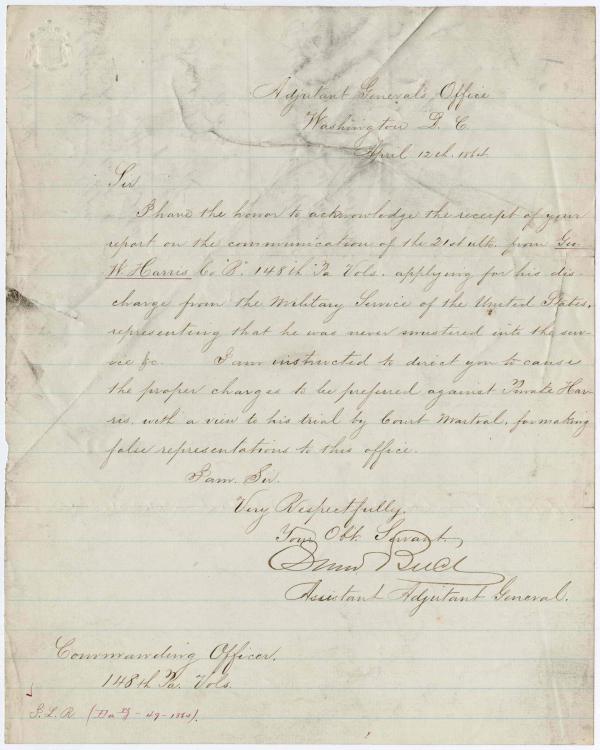 Adjutant General's Office
Washington D. C.
April 12th. 1864.
Sir
I have the honor to acknowledge the receipt of your
report on the communication of the 21st ulto. from Geo
W Harris Co "B" 148th Pa Vols. applying for his dis-
charge from the Military Service of the United States,
representing that he was never mustered into the ser-
vice &c. I am instructed to direct you to cause
the proper charges to be preferred against Private Har-
ris, with a view to his trial by Court Martial, for making
false representations to this office.
I am Sir.
Very Respectfully.
Your Obt. Servant.
Assistant Adjutant General.
Commanding Officer.
148th Pa. Vols.
1864).